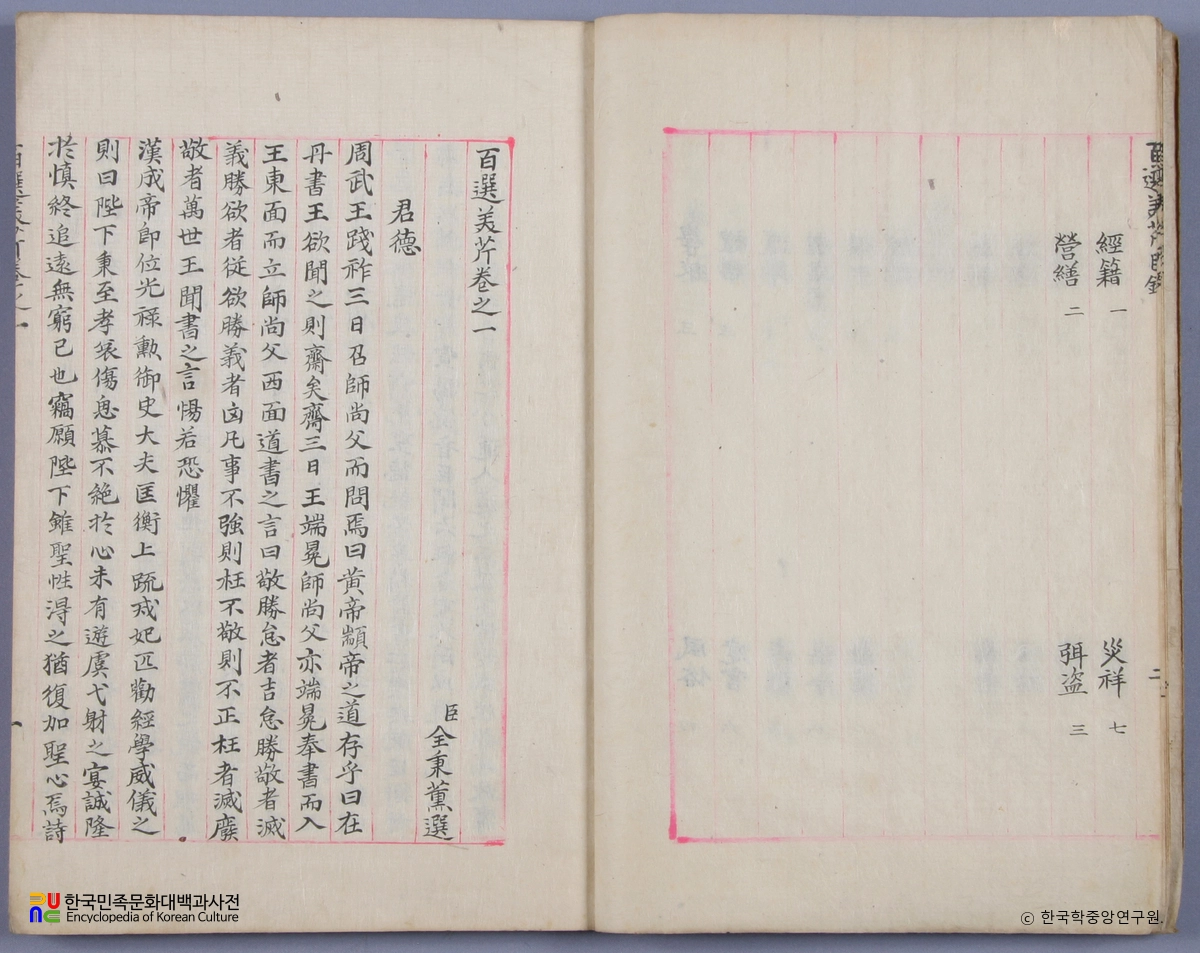 經籍 一 災祥 七
營繕 二 弭盗 三
百選美芹卷之一
臣全秉薰選
君德
周武王踐祚三日召師尚父而問焉曰黃帝顓帝之道存乎曰在
丹書王欲聞之則齋矣齋三日王端冕師尚父亦端冕奉書而入
王東面而立師尚父西面道書之言曰敬勝怠者吉怠勝敬者滅
義勝欲者從欲勝義者凶凡事不強則枉不敬則不正枉者滅廢
敬者萬世王聞書之言惕若恐懼
漢成帝卽位光祿勲御史大夫匡衡上疏戒妃匹勸經學威儀之
則曰陛下秉至孝哀傷思慕不絶扵心未有遊虞弋射之宴誠隆
扵慎終追遠無窮已也竊願陛下雖聖性淂之猶復加聖心焉詩
한국민족문화대백과사전
Encyclopedia of Korean Culture
© 한국학중앙연구원